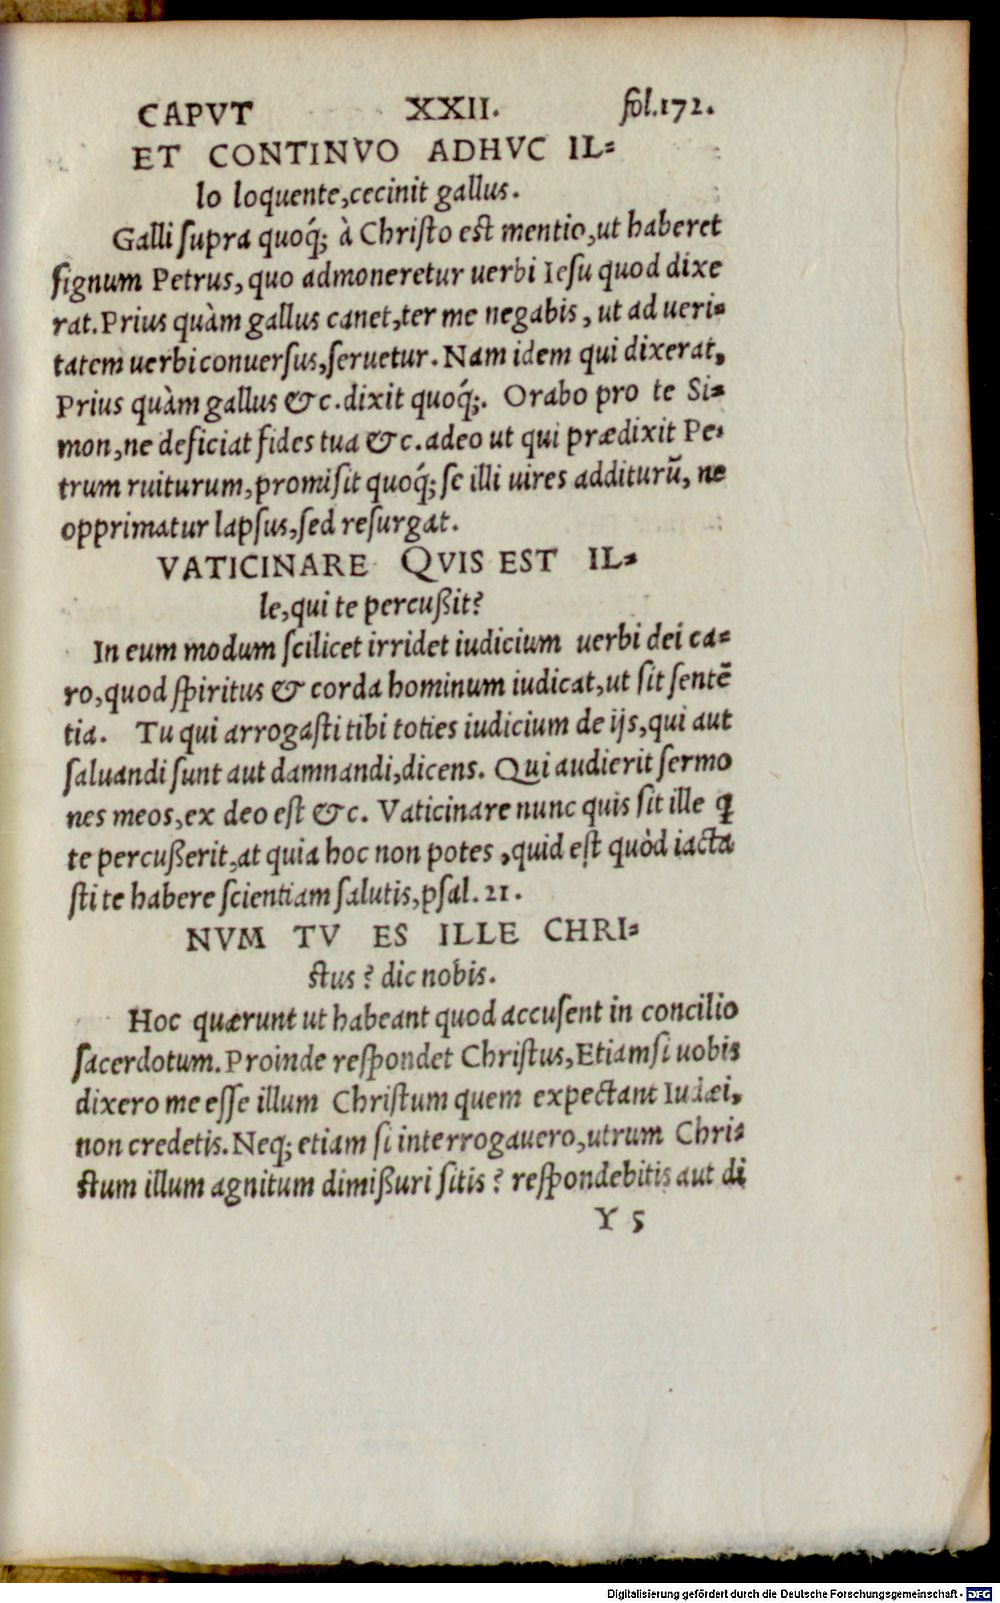 CAPVT XXII. fol.172.
ET CONTINVO ADHVC IL=
lo loquente,cecinit gallus.
Galli supra quoq́; à Christo est mentio,ut haberet
signum Petrus, quo admoneretur uerbi Iesu quod dixe
rat. Prius quàm gallus canet,ter me negabis, ut ad ueri=
tatem uerbi conuersus,seruetur. Nam idem qui dixerat,
Prius quàm gallus &c. dixit quoq́;. Orabo pro te Si=
mon,ne deficiat fides tua &c. adeo ut qui prædixit Pe=
trum ruiturum,promisit quoq́; se illi uires additurū, ne
opprimatur lapsus,sed resurgat.
VATICINARE QVIS EST IL=
le,qui te percußit?
In eum modum scilicet irridet iudicium uerbi dei ca=
ro,quod spiritus & corda hominum iudicat,ut sit sentē
tia. Tu qui arrogasti tibi toties iudicium de ijs,qui aut
saluandi sunt aut damnandi,dicens. Qui audierit sermo
nes meos,ex deo est &c. Vaticinare nunc quis sit ille ꝗ
te percußerit,at quia hoc non potes ,quid est quòd iacta
sti te habere scientiam salutis,psal. 21.
NVM TV ES ILLE CHRI=
stus ? dic nobis.
Hoc quærunt ut habeant quod accusent in concilio
sacerdotum. Proinde respondet Christus, Etiamsi uobis
dixero me esse illum Christum quem expectant Iudæi,
non credetis. Neq; etiam si interrogauero,utrum Chri=
stum illum agnitum dimißuri sitis ? respondebitis aut di
Y 5
Digitalisierung gefördert durch die Deutsche Forschungsgemeinschaft - DFG